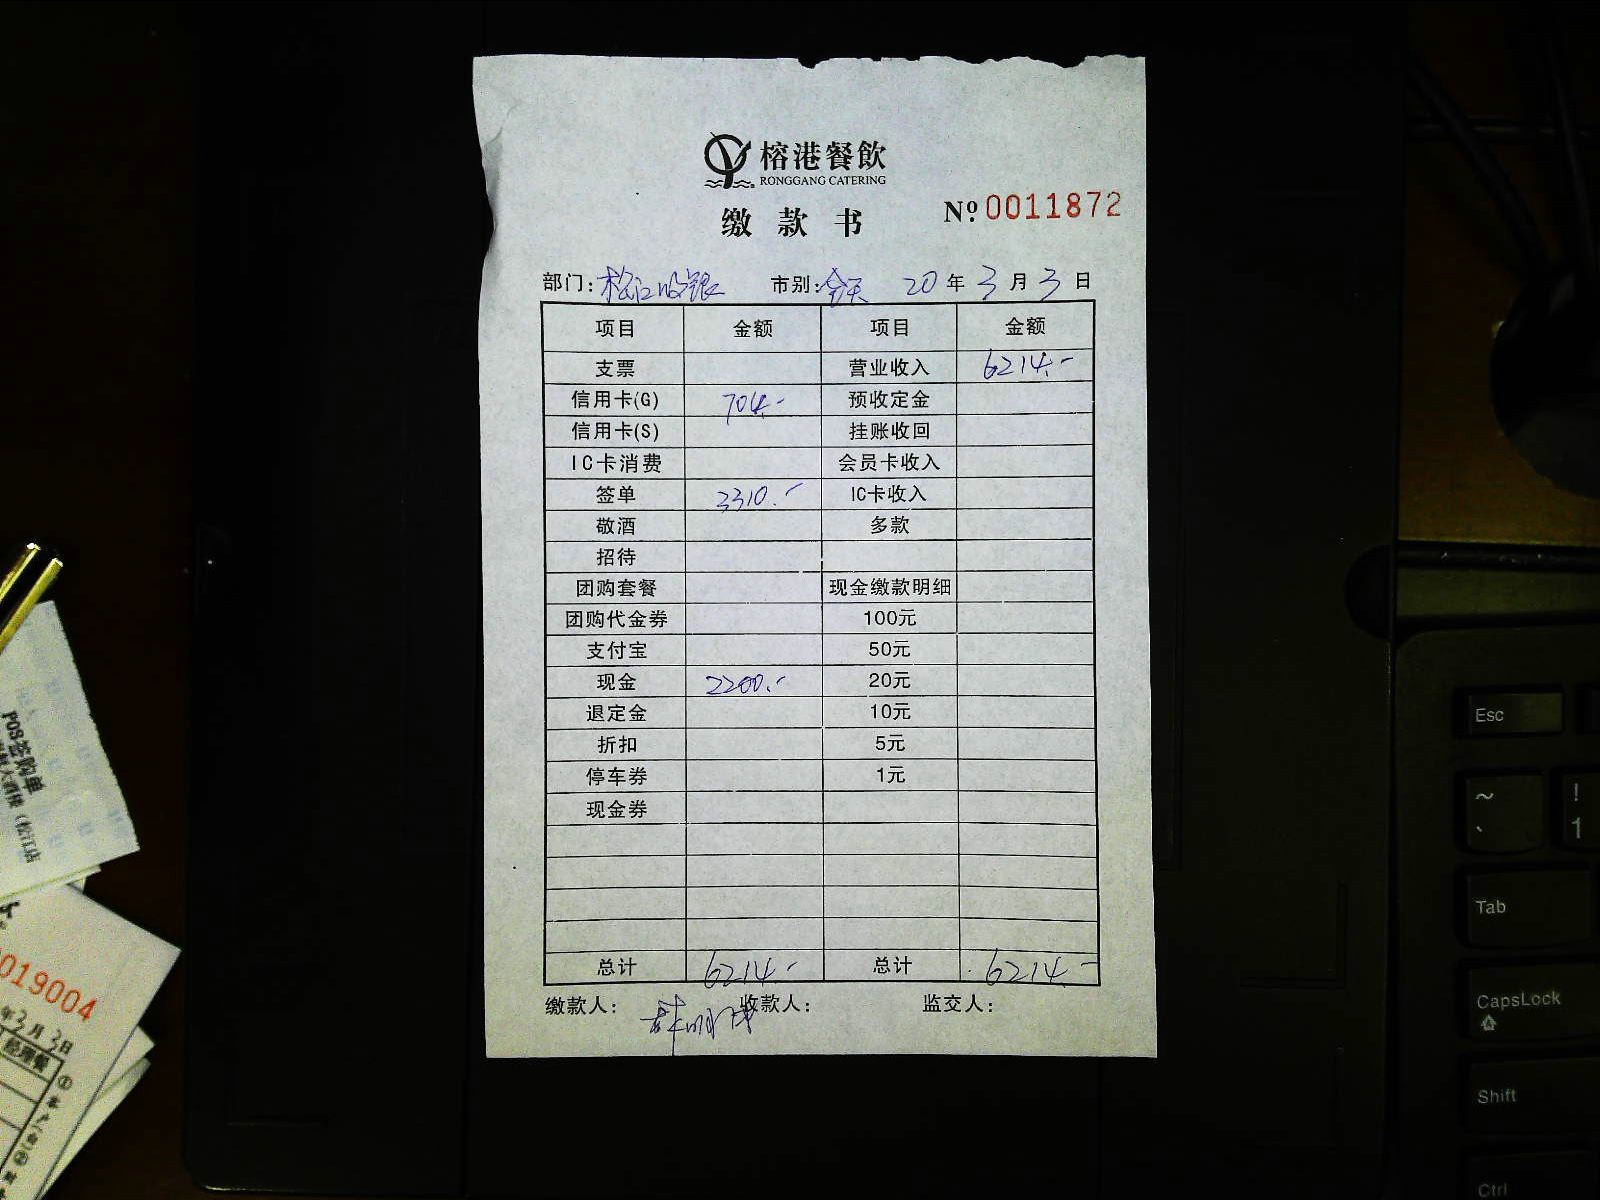 榕港餐飲
RONGGANG CATERING
缴款书
Nº 0011872
部门: 松江收银 市别: 全天 20年3月3日
项目 金额 项目 金额
支票 营业收入 6214.-
信用卡(G) 704.- 预收定金
信用卡(S) 挂账收回
IC卡消费 会员卡收入
签单 3310.- IC卡收入
敬酒 多款
招待
团购套餐 现金缴款明细
团购代金券 100元
支付宝 50元
现金 2200.- 20元
退定金 10元
折扣 5元
停车券 1元
现金券
总计 6214.- 总计 6214.-
缴款人: 收款人: 监交人:
POS签购单
019004
年3月3日
经理餐
Esc
~ !
` 1
Tab
CapsLock
Shift
Ctrl